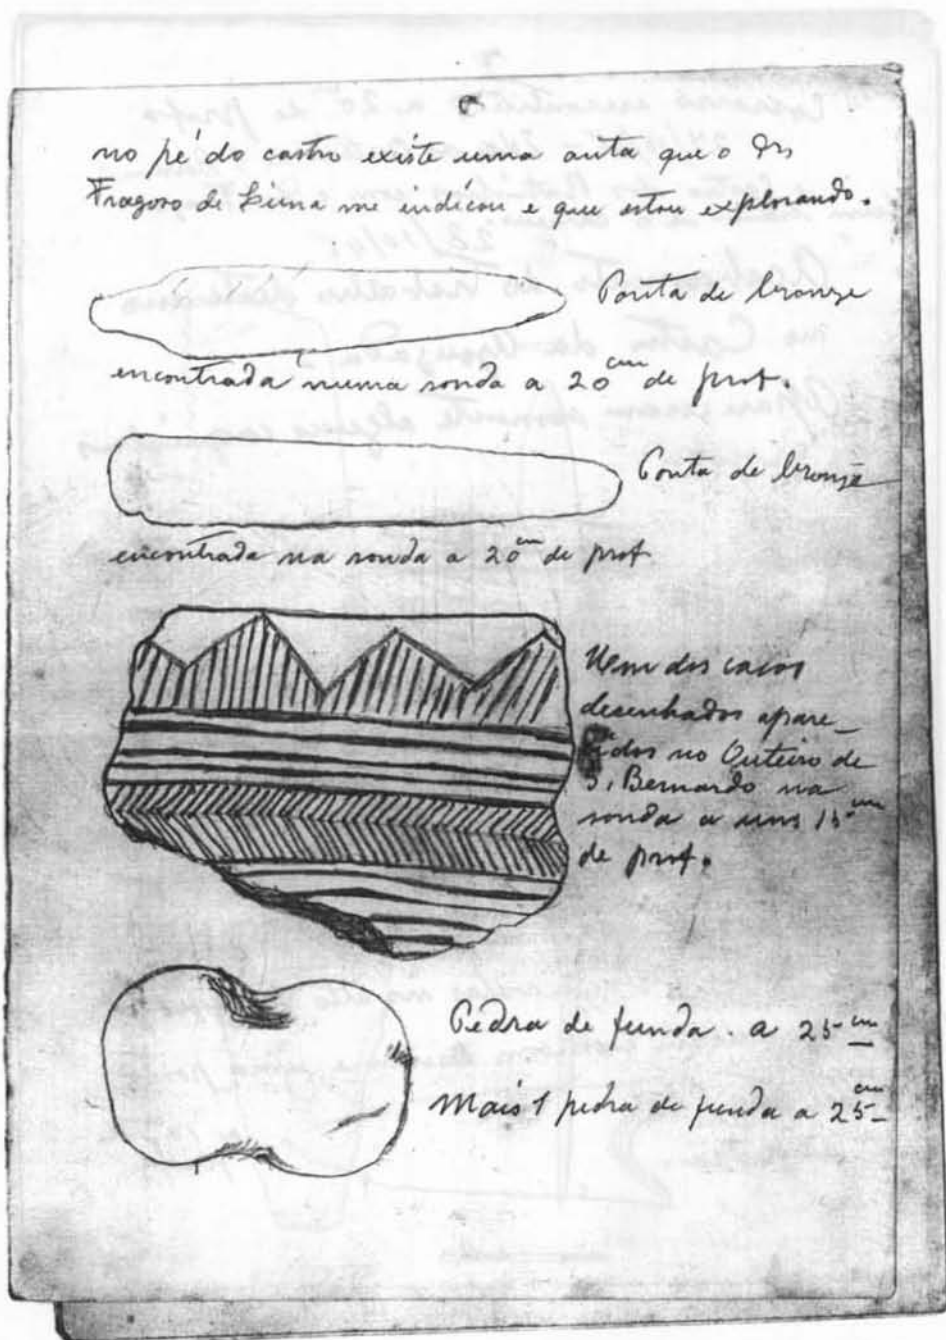 no pé do castro existe uma anta que o Dr
Fragoso de Lima me indicou e que estou explorando.
Ponta de bronze
encontrada numa sonda a 20 cm de prof.
Ponta de bronze
encontrada na sonda a 20 cm de prof
Um dos cacos
desenhados apare-
cidos no Outeiro de
S. Bernardo na
sonda a uns 15 cm
de prof.
Pedra de funda. a 25 cm
Mais 1 pedra de funda a 25 cm